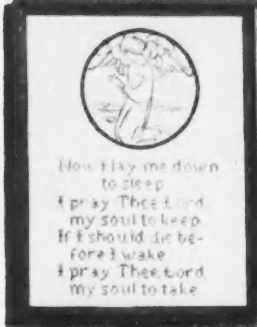 Now I lay me down
to sleep
I pray Thee Lord
my soul to keep
If I should die be-
fore I wake
I pray Thee Lord
my soul to take